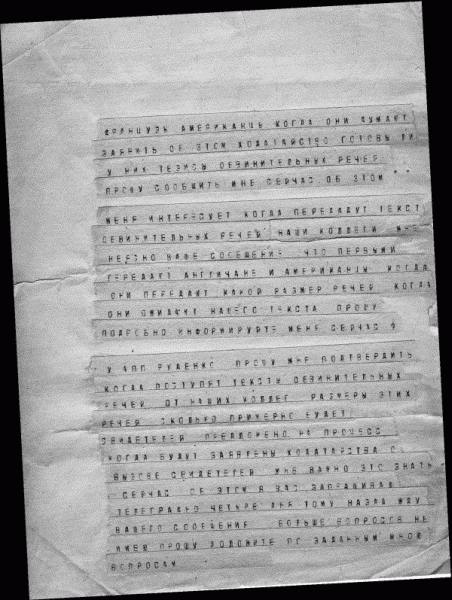 ФРАНЦУЗЫ АМЕРИКАНЦЫ КОГДА ОНИ ДУМАЮТ
ЗАЯВИТЬ ОБ ЭТОМ ХОДАТАЙСТВО ГОТОВЫ ЛИ
У НИХ ТЕЗИСЫ ОБВИНИТЕЛЬНЫХ РЕЧЕЙ
ПРОШУ СООБЩИТЬ МНЕ СЕЙЧАС ОБ ЭТОМ
МЕНЯ ИНТЕРЕСУЕТ КОГДА ПЕРЕДАДУТ ТЕКСТ
ОБВИНИТЕЛЬНЫХ РЕЧЕЙ НАШИ КОЛЛЕГИ МНЕ
НЕЯСНО ВАШЕ СООБЩЕНИЕ ЧТО ПЕРВЫМИ
ПЕРЕДАЮТ АНГЛИЧАНЕ И АМЕРИКАНЦЫ КОГДА
ОНИ ПЕРЕДАЮТ КАКОЙ РАЗМЕР РЕЧЕЙ КОГДА
ОНИ ОЖИДАЮТ НАШЕГО ТЕКСТА ПРОШУ
ПОДРОБНО ИНФОРМИРУЙТЕ МЕНЯ СЕЙЧАС
У АПП РУДЕНКО ПРОШУ МНЕ ПОДТВЕРДИТЬ
КОГДА ПОСТУПЯТ ТЕКСТЫ ОБВИНИТЕЛЬНЫХ
РЕЧЕЙ ОТ НАШИХ КОЛЛЕГ РАЗМЕРЫ ЭТИХ
РЕЧЕЙ СКОЛЬКО ПРИМЕРНО БУДЕТ
СВИДЕТЕЛЕЙ ПРЕДЛОЖЕНО НА ПРОЦЕСС
КОГДА БУДУТ ЗАЯВЛЕНЫ ХОДАТАЙСТВА О
ВЫЗОВЕ СВИДЕТЕЛЕЙ МНЕ ВАЖНО ЭТО ЗНАТЬ
СЕЙЧАС ОБ ЭТОМ Я ВАС ЗАПРАШИВАЛ
ТЕЛЕГРАФНО ЧЕТЫРЕ ДНЯ ТОМУ НАЗАД ЖДУ
ВАШЕГО СООБЩЕНИЯ БОЛЬШЕ ВОПРОСОВ НЕ
ИМЕЮ ПРОШУ ДОЛОЖИТЕ ПО ЗАДАННЫМ МНОЮ
ВОПРОСАМ